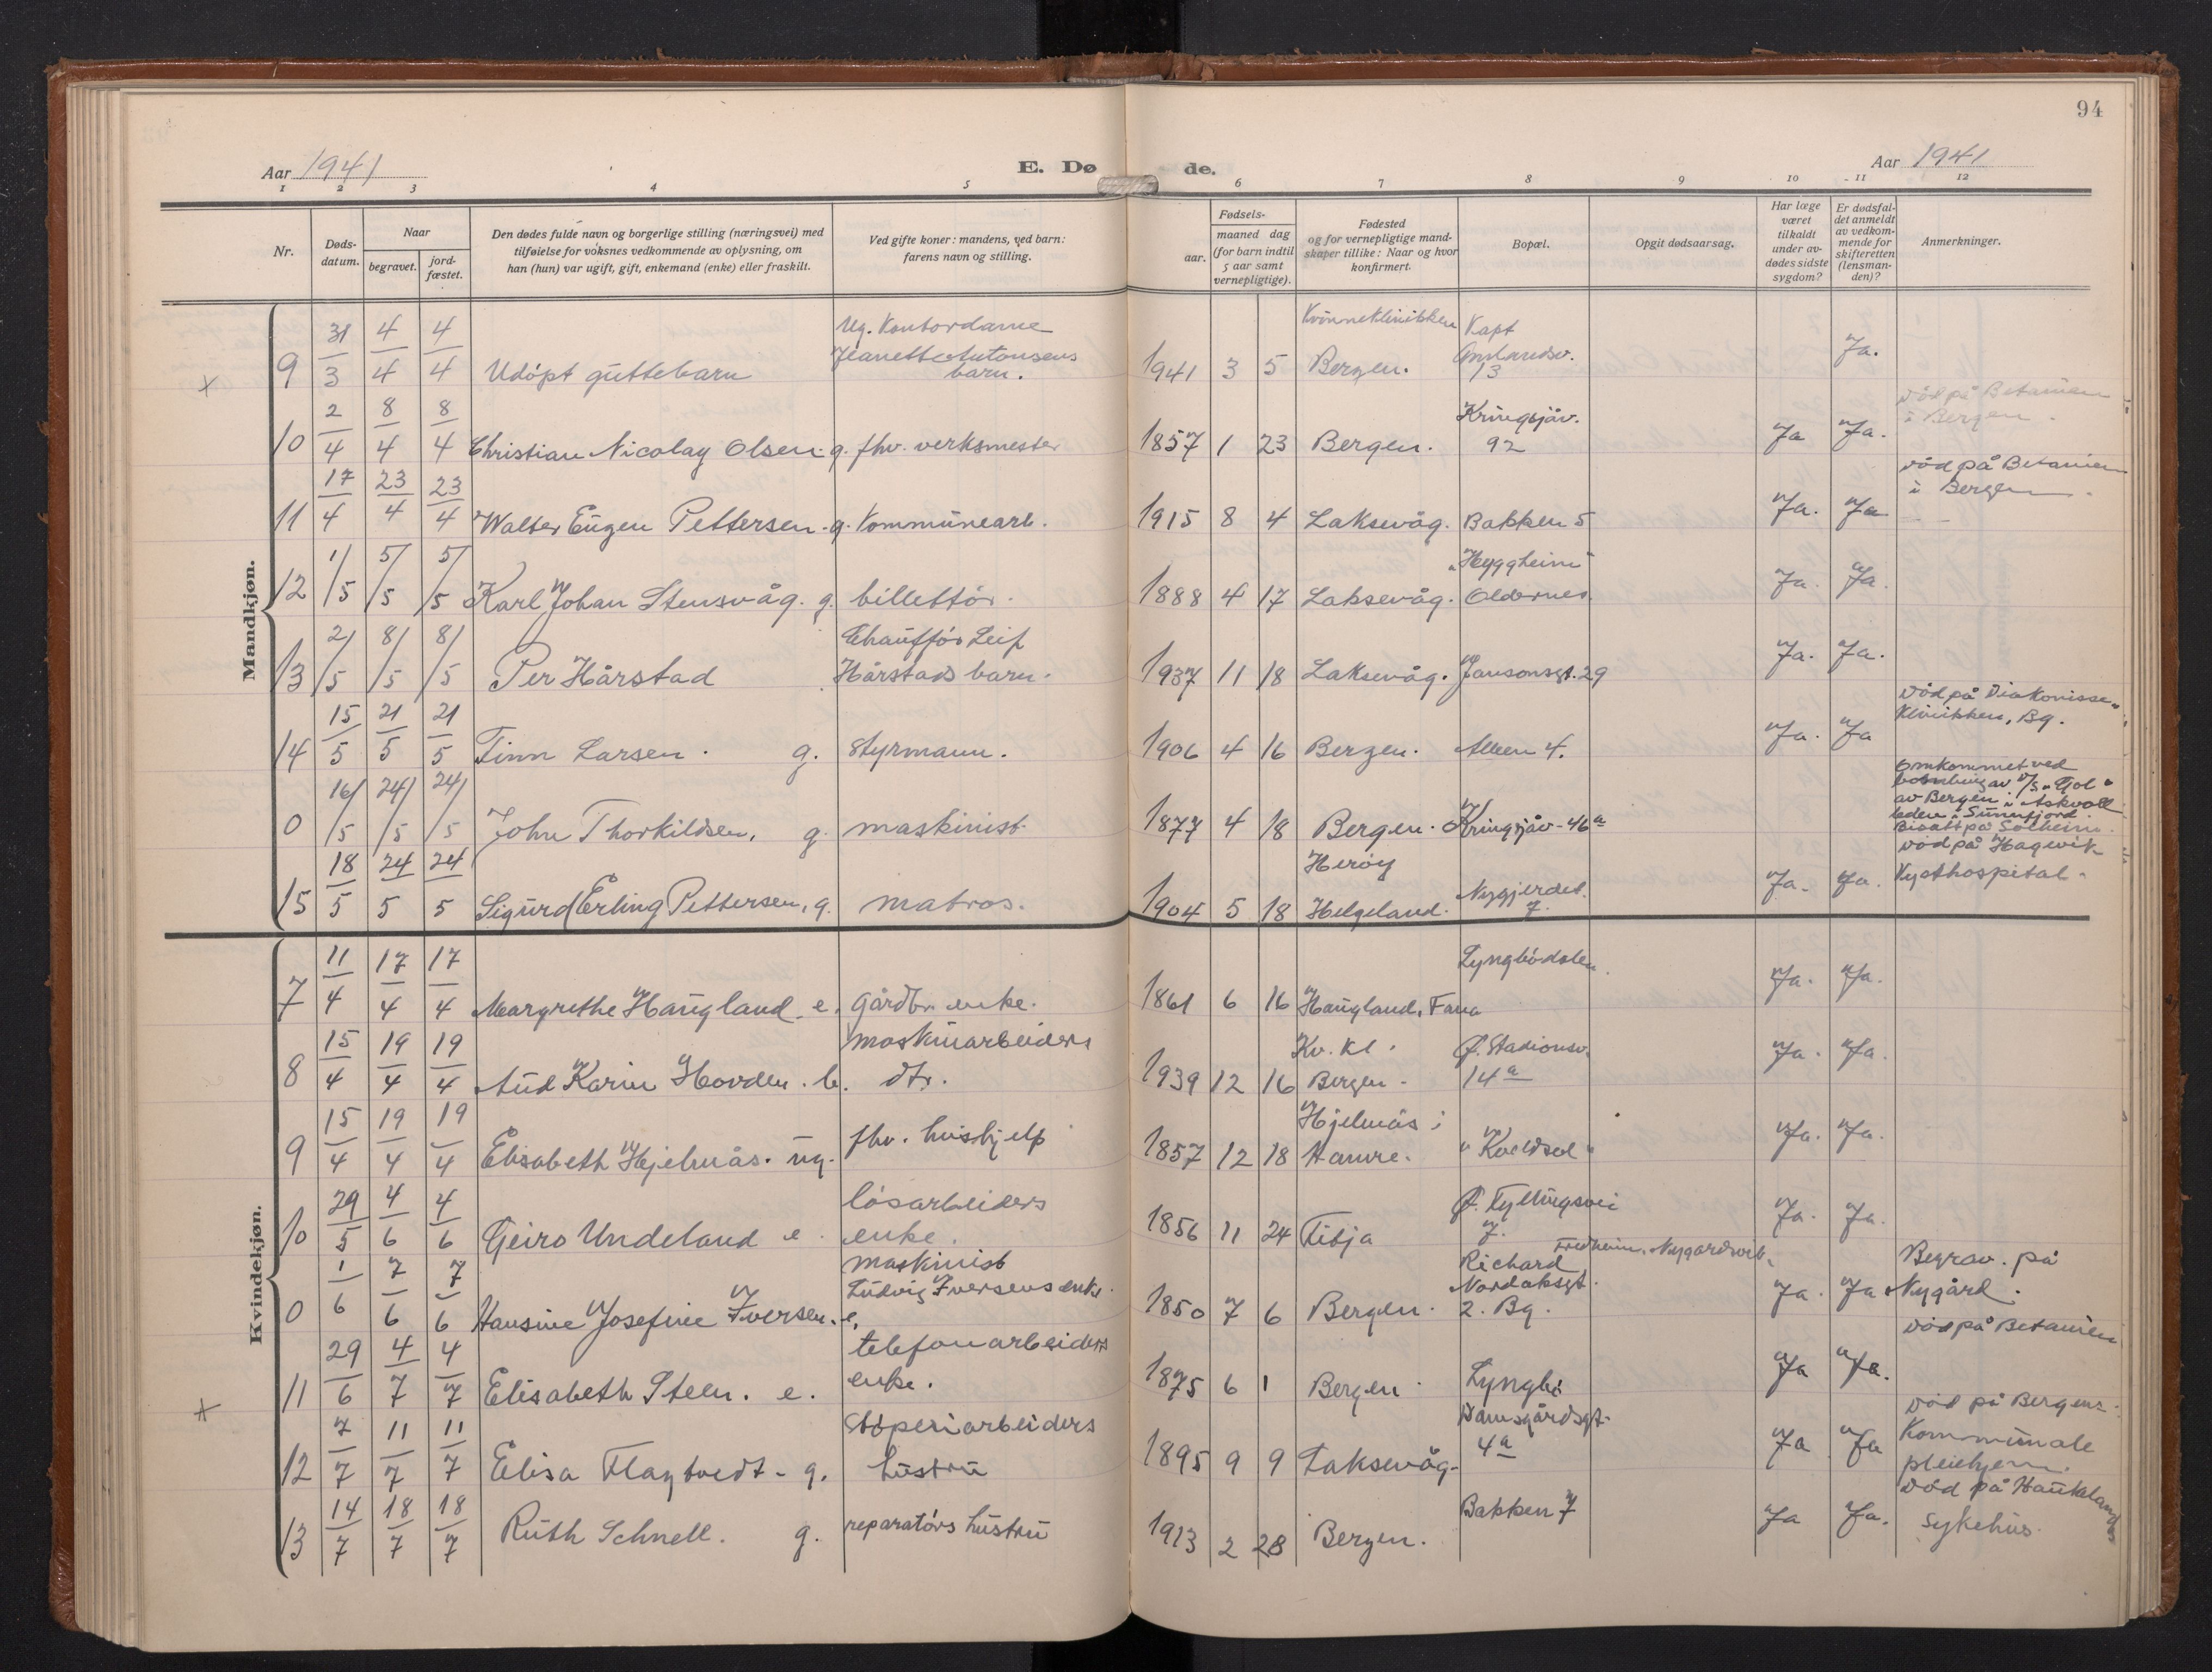 94
Aar 1941
E. Dø de.
Aar 1941
1 2 3 4 5 6 7 8 9 10 11 12
Nr.
Døds-
datum.
Naar
begravet.
jord-
fæstet.
Den dødes fulde navn og borgerlige stilling (næringsvei) med
tilføielse for voksnes vedkommende av oplysning, om
han (hun) var ugift, gift, enkemand (enke) eller fraskilt.
Ved gifte koner: mandens, ved barn:
farens navn og stilling.
Fødsels-
aar.
maaned dag
(for barn indtil
5 aar samt
vernepligtige).
Fødested
og for vernepligtige mand-
skaper tillike: Naar og hvor
konfirmert.
Bopæl.
Opgit dødsaarsag.
Har læge
været
tilkaldt
under av-
dødes sidste
sygdom?
Er dødsfal-
det anmeldt
av vedkom-
mende for
skifteretten
(lensman-
den)?
Anmerkninger.
Mandkjøn.
9 31/3 4/4 4/4 Udöpt guttebarn
Ug. Kontordame
Jeanette Antonsens
barn.
1941 3 5 Kvinneklinikken
Bergen.
Kapt
13
Ja.
10 2/4 8/4 8/4 Christian Nicolay Olsen. g. fhv. verksmester
1857 1 23 Bergen. Kringsjåv.
92
Ja Ja.
død på Betanien
i Bergen.
11 17/4 23/4 23/4 Walter Eugen Pettersen. g. Kommunearb.
1915 8 4 Laksevåg. Bakken 5
Ja. Ja
død på Betanien
i Bergen.
12 1/5 5/5 5/5 Karl Johan Stensvåg. g. billettör.
1888 4 17 Laksevåg. "Heggheim"
Oldernes.
Ja. Ja.
13 2/5 8/5 8/5 Per Hårstad
Chaufför Leif
Hårstads barn.
1937 11 18 Laksevåg. Jansonsgt. 29
Ja. Ja.
14 15/5 21/5 21/5 Finn Larsen. g. Styrmann.
1906 4 16 Bergen. Alleen 4.
Ja. Ja
död på Diakonisse-
klinikken, Bg.
0 16/5 24/5 24/5 John Thorkildsen, g. maskinist.
1877 4 18 Bergen. Kringsjåv. 46a
Omkommet ved
bombing av D/S "Gol"
av Bergen i Askvoll
leden i Sunnfjord.
Bisatt på Solheim.
15 18/5 24/5 24/5 Sigurd Erling Pettersen, g. matros.
1904 5 18 Heröy
Helgeland. Nygjerdet.
7.
Ja. Ja.
død på Hagevik
Kysthospital.
Kvindekjøn.
7 11/4 17/4 17/4 Margrethe Haugland. e. gårdbr. enke.
1861 6 16 Haugland, Fana Lyngbödalen
Ja. Ja.
8 15/4 19/4 19/4 Aud Karin Hovden. b.
maskinarbeiders
dtr.
1939 12 16 Kv. kl.
Bergen. Ø. Stadionsv.
14a
Ja. Ja.
9 15/4 19/4 19/4 Elisabeth Hjelmås. ug. fhv. hushjelp
1857 12 18 Hjelmås i
Hamre. "Kveldsol"
Ja. Ja.
10 29/5 4/6 4/6 Geiro Undeland e.
lösarbeiders
enke.
1856 11 24 Titja Ø. Fyllingsvei
7.
Ja. Ja.
0 1/6 7/6 7/6 Hansine Josefine Iversen. e.
maskinist
Ludvig Iversens enke.
1850 7 6 Bergen. Richard
Nordaksgt.
2. Bg.
Fredheim, Nygardsvik.
Ja. Ja
Begrav. på
Nygård.
11 29/6 4/7 4/7 Elisabeth Steen. e.
telefonarbeiders
enke.
1875 6 1 Bergen. Lyngbö
Ja Ja.
död på Betanien
12 7/7 11/7 11/7 Elisa Flaytvedt. g.
Stöperiarbeiders
hustru
1895 9 9 Laksevåg. Damsgårdsgt.
4a
Ja Ja
død på Bergens
Kommunale
pleiehjem.
13 14/7 18/7 18/7 Ruth Schnell. g. reparatørs hustru
1913 2 28 Bergen. Bakken 7
Ja Ja.
död på Haukelands
sykehus.